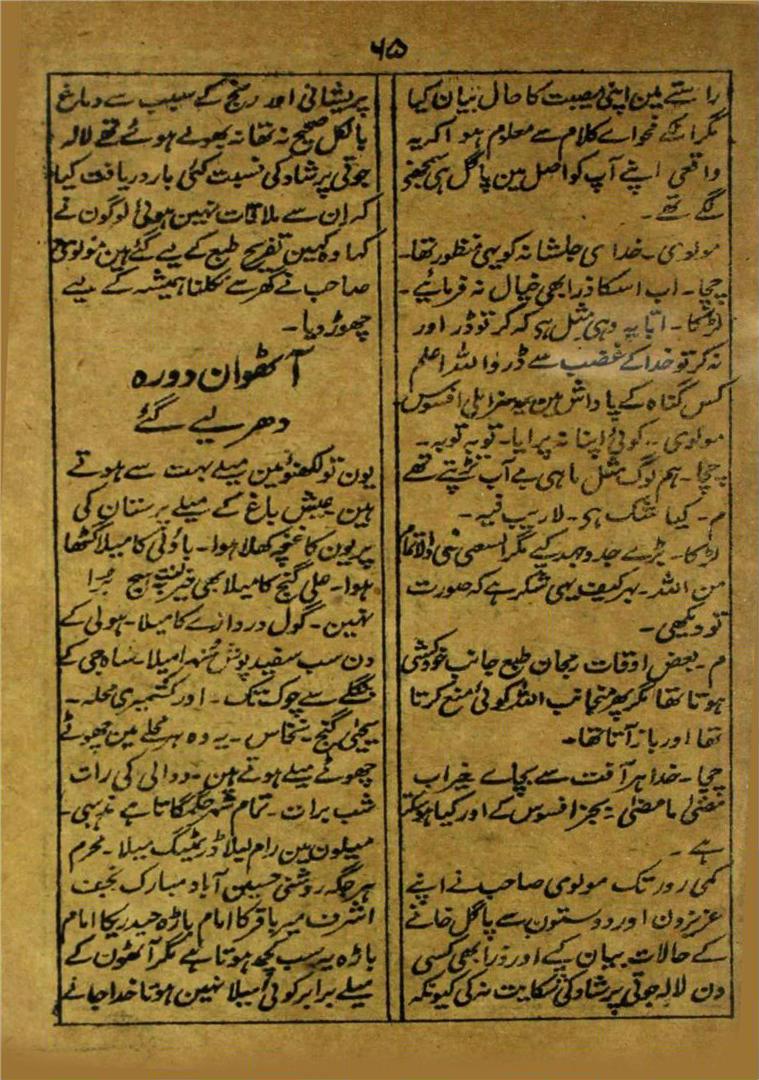 ۶۵
راستے مین اپنی مصیبت کا حال بیان کیا
مگر انکے فحواے کلام سے معلوم ہوا کہ یہ
واقعی اپنے آپ کو اصل مین پاگل ہی سمجھنے
لگے تھے۔
مولوی۔ خدا ی جلشانہ کو یہی منظور تھا۔
چچا۔ اب اسکا ذرا بھی خیال نہ فرمائیے۔
لڑکا۔ ابا یہ وہی مثل ہی کہ کر تو ڈر اور
نہ کر تو خدا کے غضب سے ڈر واللہ اعلم
کس گناہ کے پاداش مین یہ سزا ملی افسوس
مولوی۔ کوئی اپنا نہ پرایا۔ توبہ توبہ۔
چچا۔ ہم لوگ مثل ماہی بے آب تڑپتے تھے
م۔ کیا شک ہی۔ لاریب فیہ۔
لڑکا۔ بڑے جدوجہد کیے مگر السعی منی والاتمام
من اللہ۔ بہر کیف یہی شکر ہے کہ صورت
تو دیکھی۔
م۔ بعض اوقات رجحان طبع جانب خودکشی
ہوتا تھا مگر پھر منجانب اللہ کوئی منع کرتا
تھا اور باز آتا تھا۔
چچا۔ خدا ہر آفت سے بچاے خیر اب
مضیٰ ما مضیٰ بجز افسوس کے اور کیا ہوسکتا
ہے۔
کئی روز تک مولوی صاحب نے اپنے
عزیزون اور دوستون سے پاگل خانے
کے حالات بیان کیے اور ذرا بھی کسی
دن لالہ جوتی پرشاد کی شکایت نہ کی کیونکہ
پریشانی اور رنج کے سبب سے دماغ
بالکل صحیح نہ تھا نہ بھولے ہوئے تھے لالہ
جوتی پرشاد کی نسبت کئی بار دریافت کیا
کہ اِن سے ملاقات نہین ہوئی لوگون نے
کہا وہ کہین تفریح طبع کے لیے گئے ہین مولوی
صاحب نے گھر سے نکلنا ہمیشہ کے لیے
چھوڑ دیا۔
آٹھوان دورہ
دھر لیے گئے
یون تو لکھنؤ مین میلے بہت سے ہوتے
ہین عیش باغ کے میلے پرستان کی
پریون کا غنچہ کھلا ہوا۔ باؤلی کا میلا گٹھا
ہوا۔ علی گنج کا میلا بھی خیر بُرا
نہین۔ گول دروازے کا میلا۔ ہولی کے
دن سب سفید پوش میلا شاہ جی کے
سے چوک تک۔ اور کشمیری محلہ۔
یحیٰی گنج۔ نخاس۔ یہ وہ ہر محلے مین چھوٹے
چھوٹے میلے ہوتے ہین۔ دوالی کی رات
شب برات۔ تمام شہر جگمگاتا ہے مذہبی۔
میلون مین رام لیلا میلا۔ محرم
ہر جگہ روشنی حسین آباد مبارک نجف
اشرف میر باقر کا امام باڑہ حیدر کا امام
باڑہ یہ سب کچھ ہوتا ہے مگر آٹھون کے
میلے برابر کوئی میلا نہین ہوتا خدا جانے